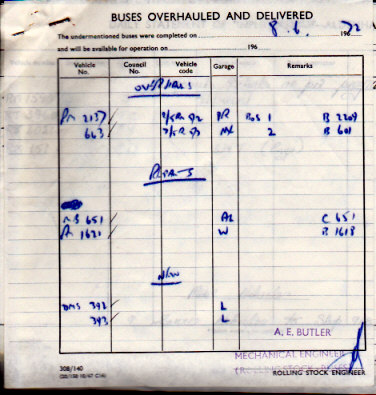 BUSES OVERHAULED AND DELIVERED
The undermentioned buses were completed on 8.6. 196 72
and will be available for operation on 196
Vehicle No. Council No. Vehicle code Garage Remarks
OVERHAULS
RM 2137 2/5RM 9/2 PR Bos 1 B 2209
663 7/5RM 9/3 2 B 601
REPAIRS
MB 651 AL C 651
RM 1621 W B 1618
NEW
DMS 392 L
393 L
A. E. BUTLER
MECHANICAL ENGINEER
(ROLLING STOCK - BUSES)
308/140
ROLLING STOCK ENGINEER